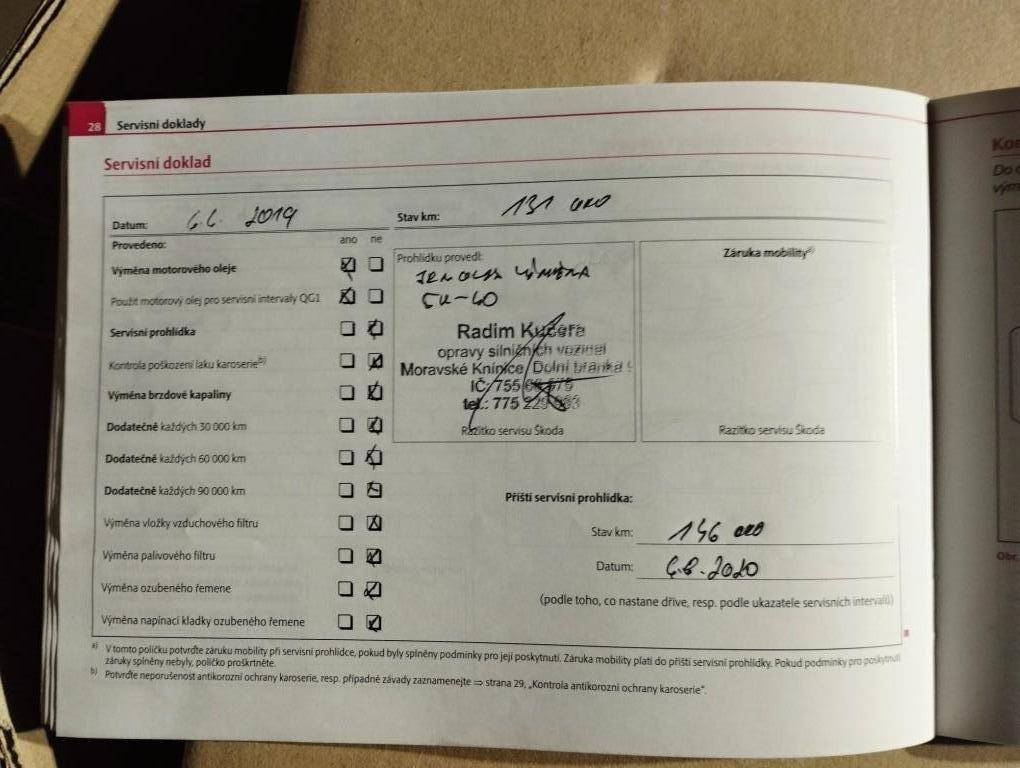 28 Servisní doklady
Servisní doklad
Datum: 6.6. 2019 Stav km: 131 000
Provedeno: ano ne
Výměna motorového oleje
Použit motorový olej pro servisní intervaly QG1
Servisní prohlídka
Kontrola poškození laku karoserie b)
Výměna brzdové kapaliny
Dodatečně každých 30 000 km
Dodatečně každých 60 000 km
Dodatečně každých 90 000 km
Výměna vložky vzduchového filtru
Výměna palivového filtru
Výměna ozubeného řemene
Výměna napínací kladky ozubeného řemene
Prohlídku provedl:
5W-40
Radim Kučera
opravy silničních vozidel
Moravské Knínice, Dolní branka
IČ: 755
tel.: 775 229
Razítko servisu Škoda
Záruka mobility a)
Razítko servisu Škoda
Příští servisní prohlídka:
Stav km: 146 000
Datum: 2020
(podle toho, co nastane dříve, resp. podle ukazatele servisních intervalů)
a) V tomto políčku potvrďte záruku mobility při servisní prohlídce, pokud byly splněny podmínky pro její poskytnutí. Záruka mobility platí do příští servisní prohlídky. Pokud podmínky pro poskytnutí
záruky splněny nebyly, políčko proškrtněte.
b) Potvrďte neporušenost antikorozní ochrany karoserie, resp. případné závady zaznamenejte ⇒ strana 29, „Kontrola antikorozní ochrany karoserie".
Do
vým
Obr.